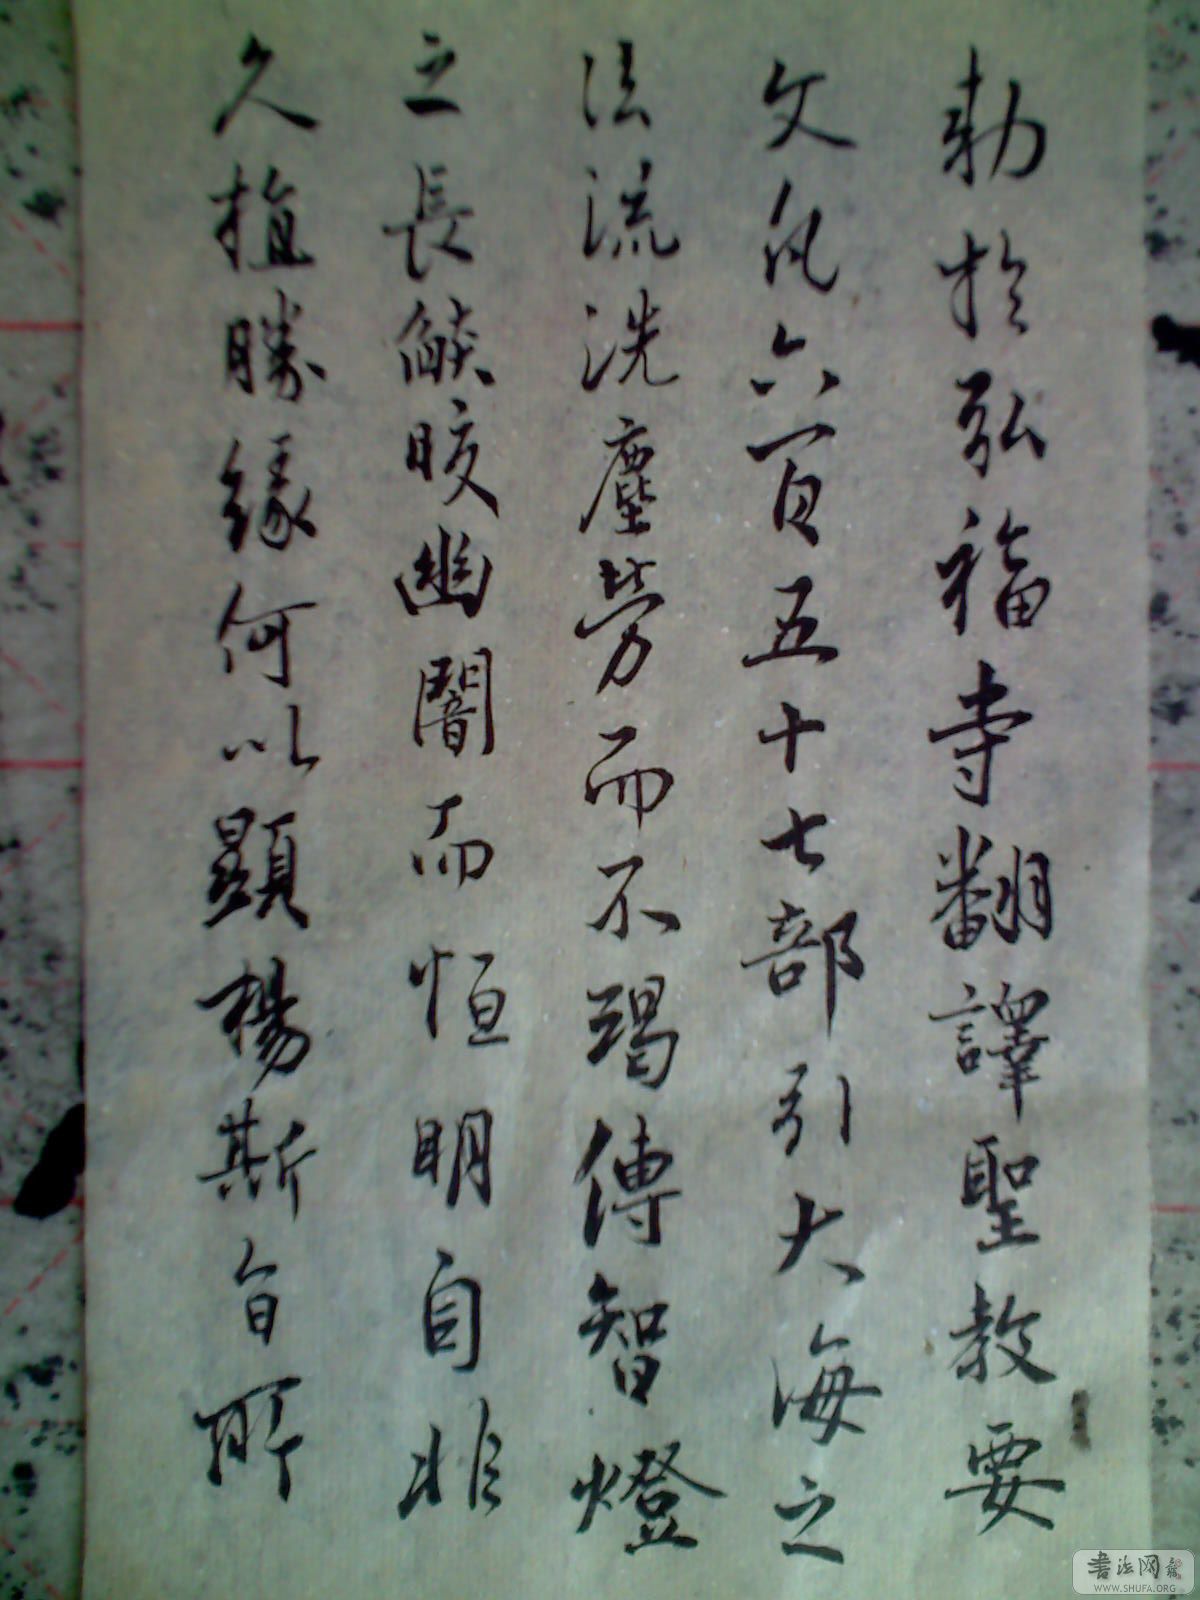 勅於弘福寺翻譯聖教要
文凡六百五十七部引大海之
法流洗塵勞而不竭傳智燈
之長焰皎幽闇而恒明自非
久植勝緣何以顯揚斯旨所
書法网
WWW.SHUFA.ORG